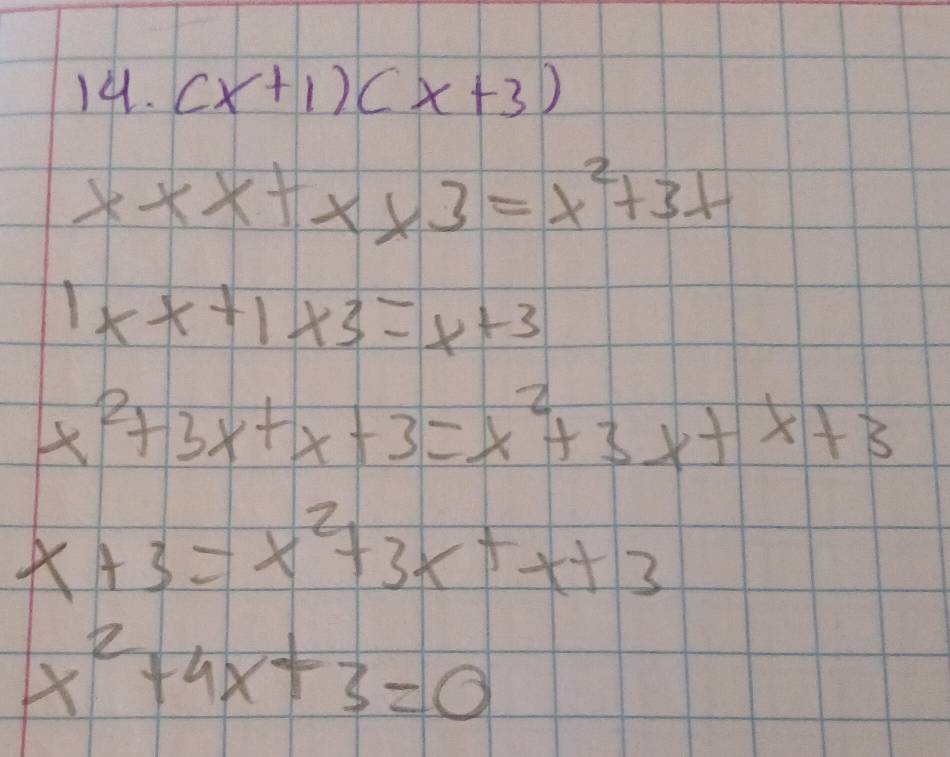 14. (x+1)(x+3)
x x x + x x 3 = x²+3x
1 x x + 1 x 3 = x+3
x²+3x+x+3=x²+3x+x+3
x+3=x²+3x+x+3
x²+4x+3=0